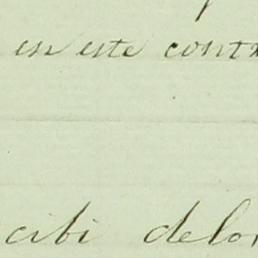 en este cont
cibi delo